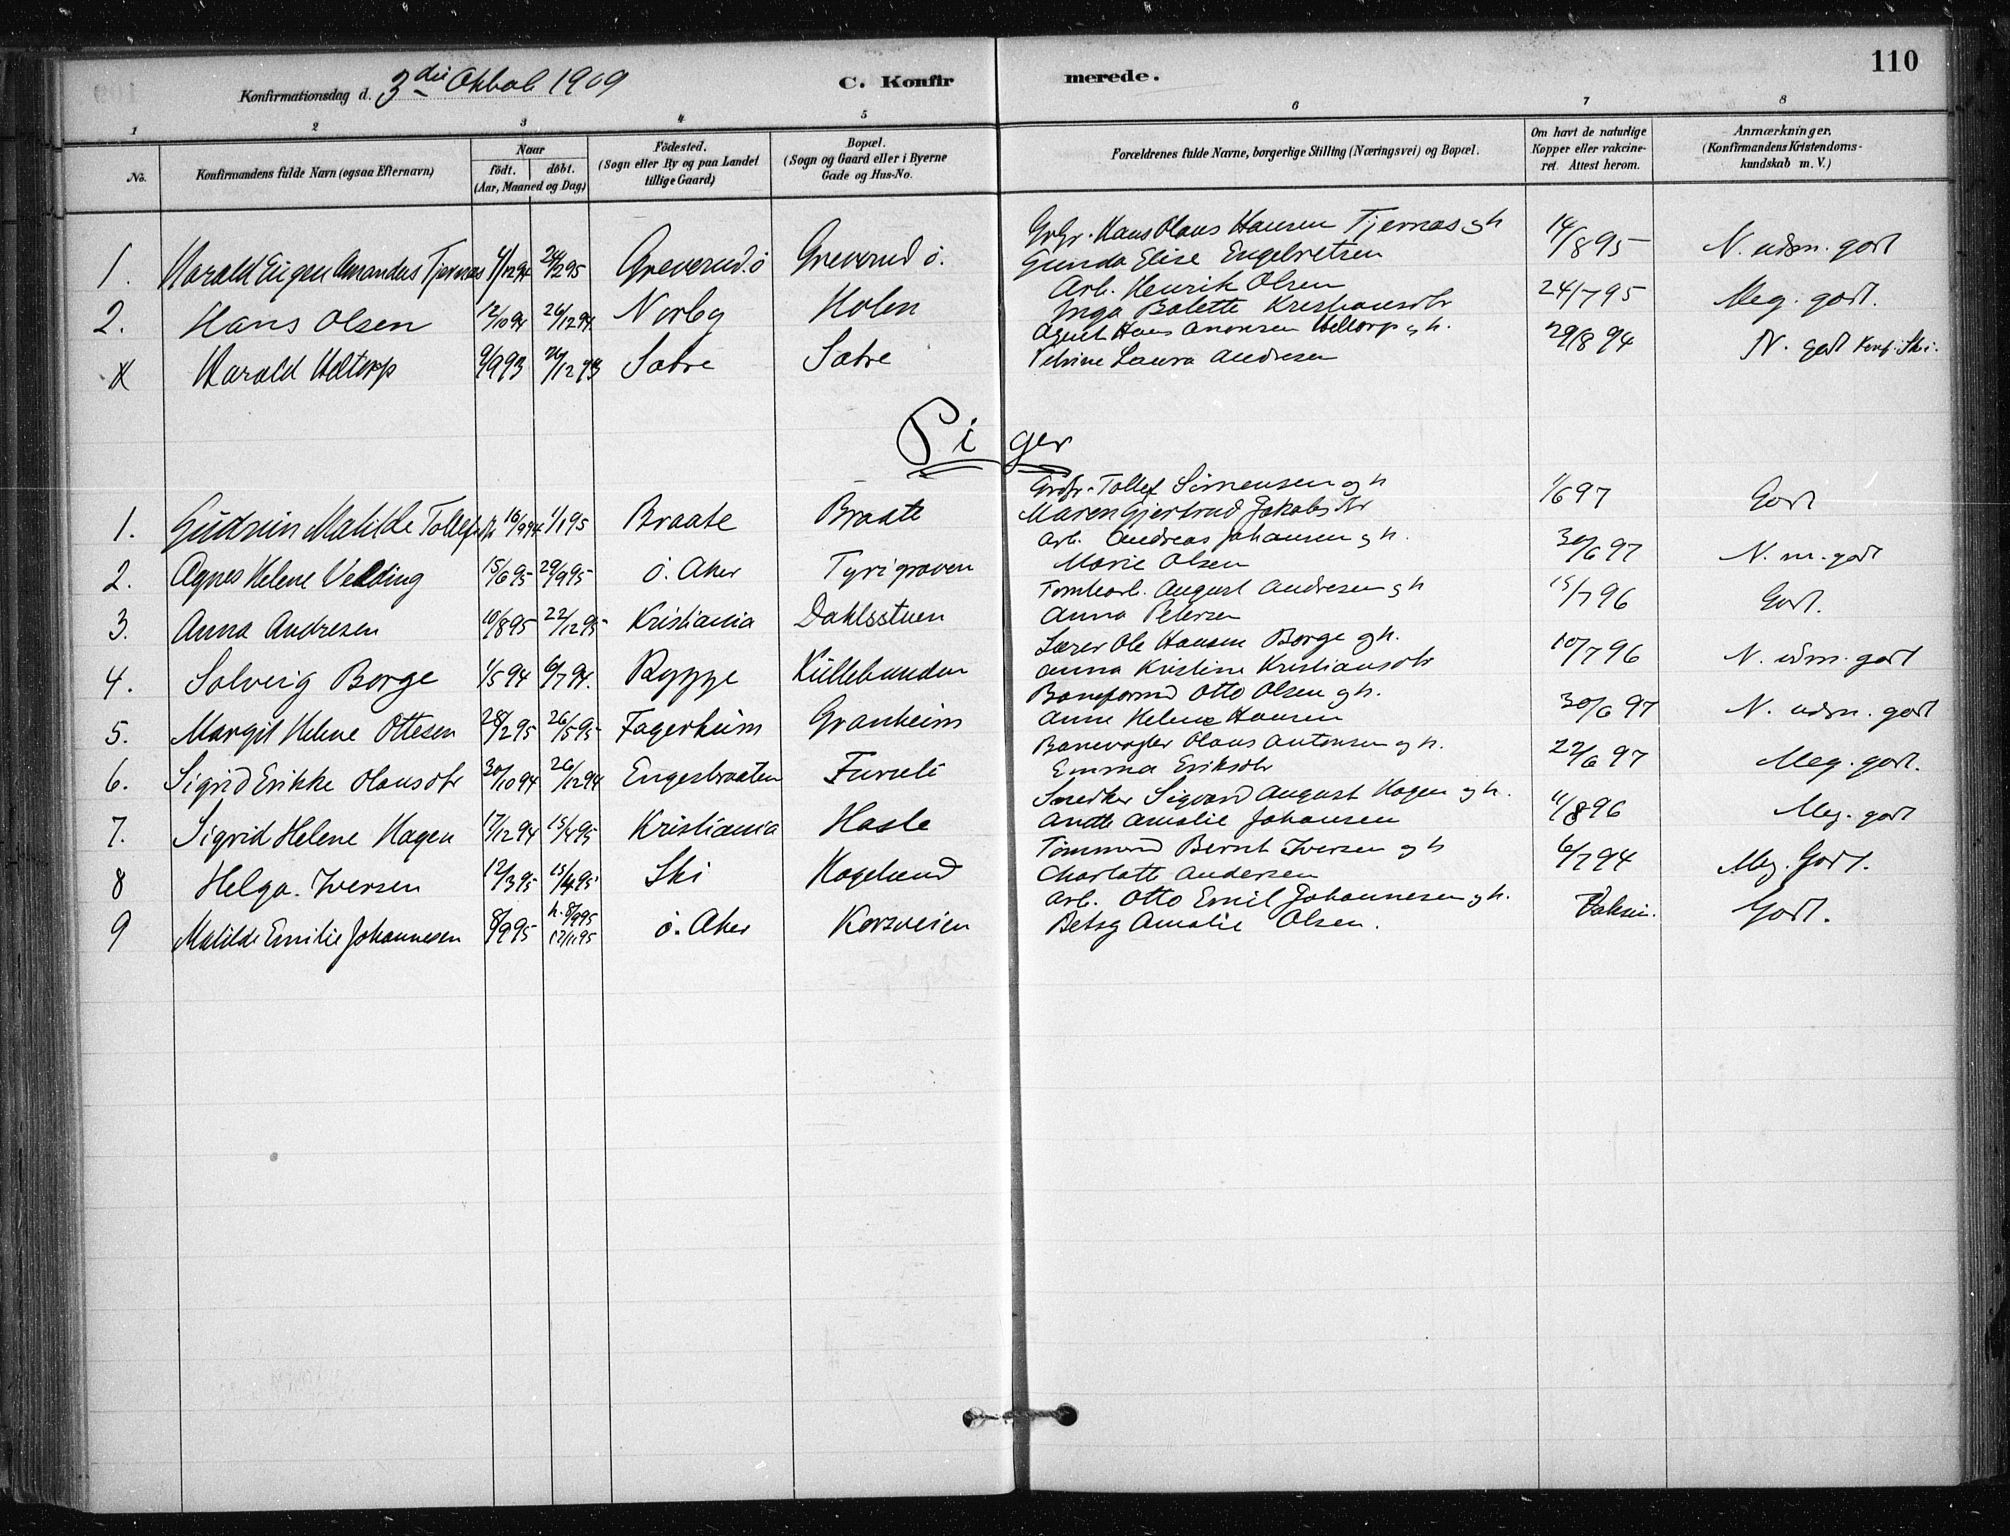 110
Konfirmationsdag d. 3die Oktob. 1909 C. Konfirmerede.
1 2 3 4 5 6 7 8
No. Konfirmandens fulde Navn (ogsaa Efternavn) Naar født. døbt. (Aar, Maaned og Dag) Fødested. (Sogn eller By og paa Landet tillige Gaard) Bopæl. (Sogn og Gaard eller i Byerne Gade og Hus-No. Forældrenes fulde Navne, borgerlige Stilling (Næringsvei) og Bopæl. Om havt de naturlige Kopper eller vakcineret. Attest herom. Anmærkninger. (Konfirmandens Kristendomskundskab m. V.)
1. Harald Eugen Amandus Tjernæs 4/12 94 24/2 95 Greverud. ø Greverud ø. Hans Olaus Hansen Tjernæs og h Gunda Elise Engebretsen 14/8 95 N. udm. godt
2. Hans Olsen 12/10 94 26/12 94. Norby Holen Arb. Henrik Olsen Inga Bolette Kristiansdtr 24/7 95 Meg. godt.
X Harald Heltorp 9/9 93 26/12 93 Sætre Sætre Agent Hans Anonsen Heltorp og h. Petrine Laura Andresen 29/8 94 N. Godt Konf. i Ski.
Piger
1. Gudrun Matilde Tollefsdtr 16/9 94 1/1 95 Braate Braate Grdbr. Tollef Simensen og h Maren Gjertrud Jakobsdtr 1/6 97 Godt
2. Agnes Helene Velding 15/6 95 29/9 95 Ø. Aker Tyrigraven Arb. Andreas Johansen og h. Marie Olsen 30/6 97 N. m. godt
3. Anna Andresen 10/8 95 22/12 95 Kristiania Dahlsstuen Tomtearb. August Andresen og h Anna Petersen 15/7 96 Godt.
4. Solveig Borge 1/5 94 6/7 94. Rygge Kullebunden Lærer Ole Hansen Borge og h. Anna Kristine Kristiansdtr 10/7 96 N. udm. godt
5. Margit Helene Ottesen 28/2 95 26/5 95 Fagerheim Granheim Baneformd Otto Olsen og h. Anne Helene Hansen 30/6 97 N. udm. godt
6. Sigrid Erikke Olausdtr 30/10 94 26/12 94 Engesbraaten Furuli Banevogter Olaus Antonsen og h. Emma Eriksdtr 22/6 97 Meg. godt.
7. Sigrid Helene Hagen 17/12 94 15/4 95 Kristiania Hasle Snedker Sigvard August Hagen og h. Anette Amalie Johansen 11/8 96 Meg. godt
8 Helga. Iversen 12/3 95 15/4 95 Ski Hagelund Tømmermd Bernt Iversen og h Charlotte Andersen 6/7 94 Meg. Godt.
9 Matilde Emilie Johannesen 8/9 95 h. 8/9 95 17/11 95 Ø. Aker Korsveien Arb. Otto Emil Johannesen og h. Betsy Amalie Olsen. Vaksin. Godt.